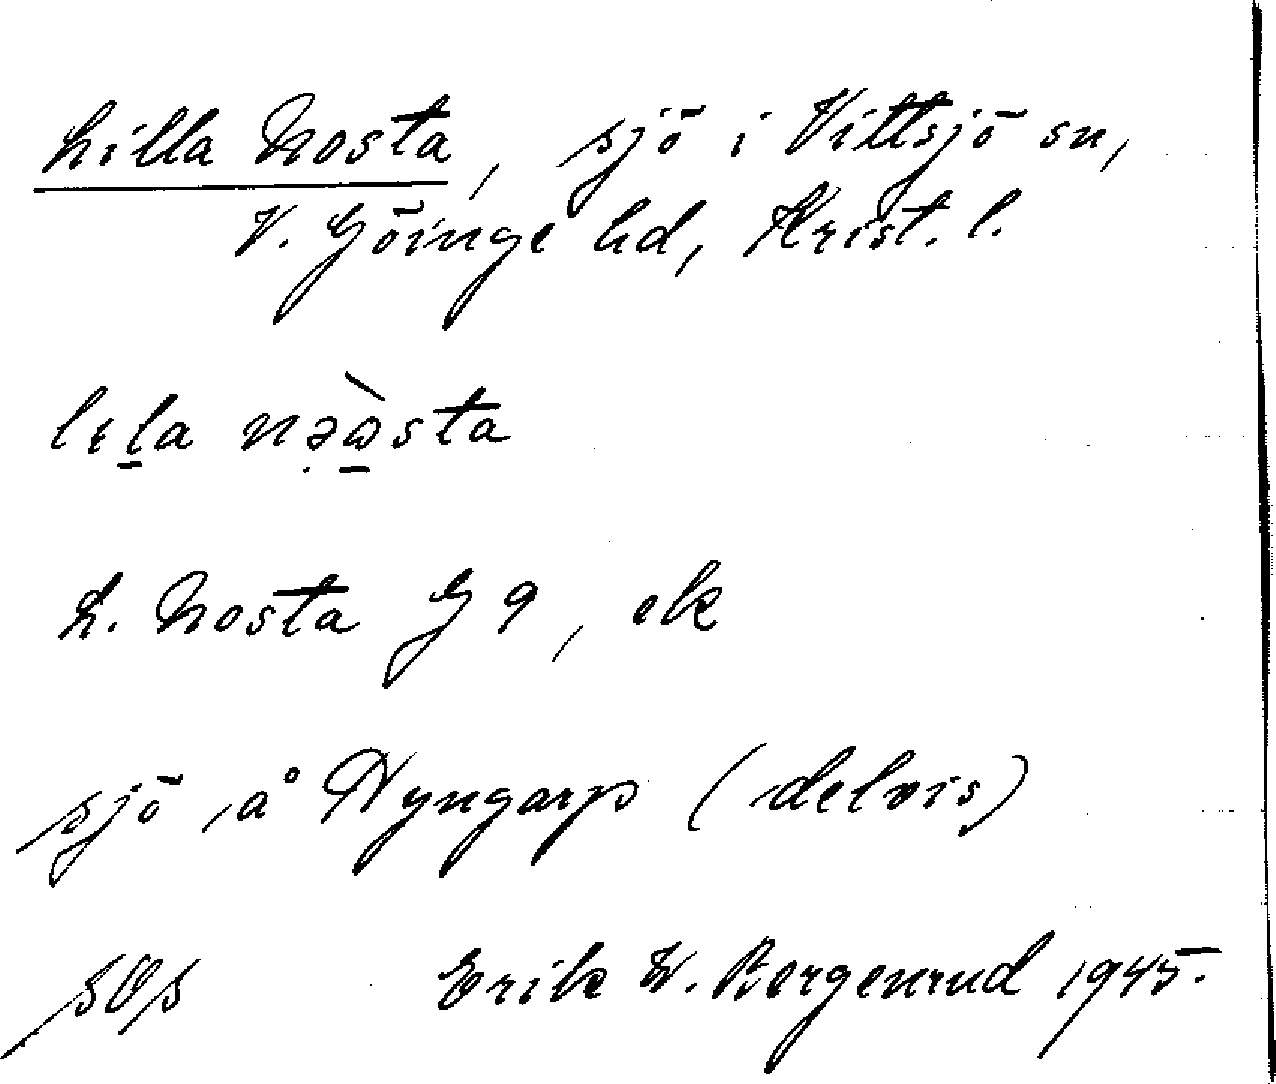 Lilla Nosta, sjö i Vittsjö sn,
V. Göinge hd, Krist. l.
lɪl̠a nə̣ὼ̠sta
L. Nosta G 9, ek
sjö å Nyngarp (delvis)
sOs Erik W. Borgenrud 1945.